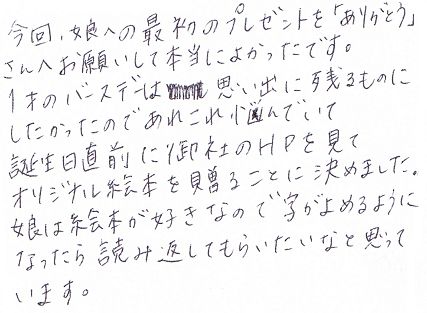 今回、娘への最初のプレゼントを「ありがとう」
さんへお願いして本当によかったです。
1才のバースデーは思い出に残るものに
したかったのであれこれ悩んでいて
誕生日直前に御社のHPを見て
オリジナル絵本を贈ることに決めました。
娘は絵本が好きなので字がよめるように
なったら読み返してもらいたいなと思って
います。